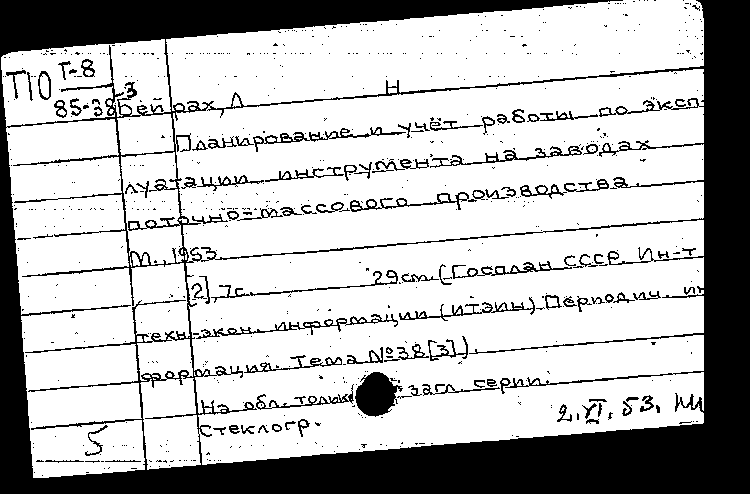 П10 Г-8
85-38-3
Дейрах, Л Н
Планирование и учёт работы по эксп-
луатации инструмента на заводах
поточно-массового производства.
М., 1953.
[2], 7с. 29см. (Госплан СССР. Ин-т
техн-экон. информации (ИТЭИн) Периодич. ин
формация. Тема №38[3]).
На обл. только загл. серии.
Стеклогр.
5
2.VI.53.